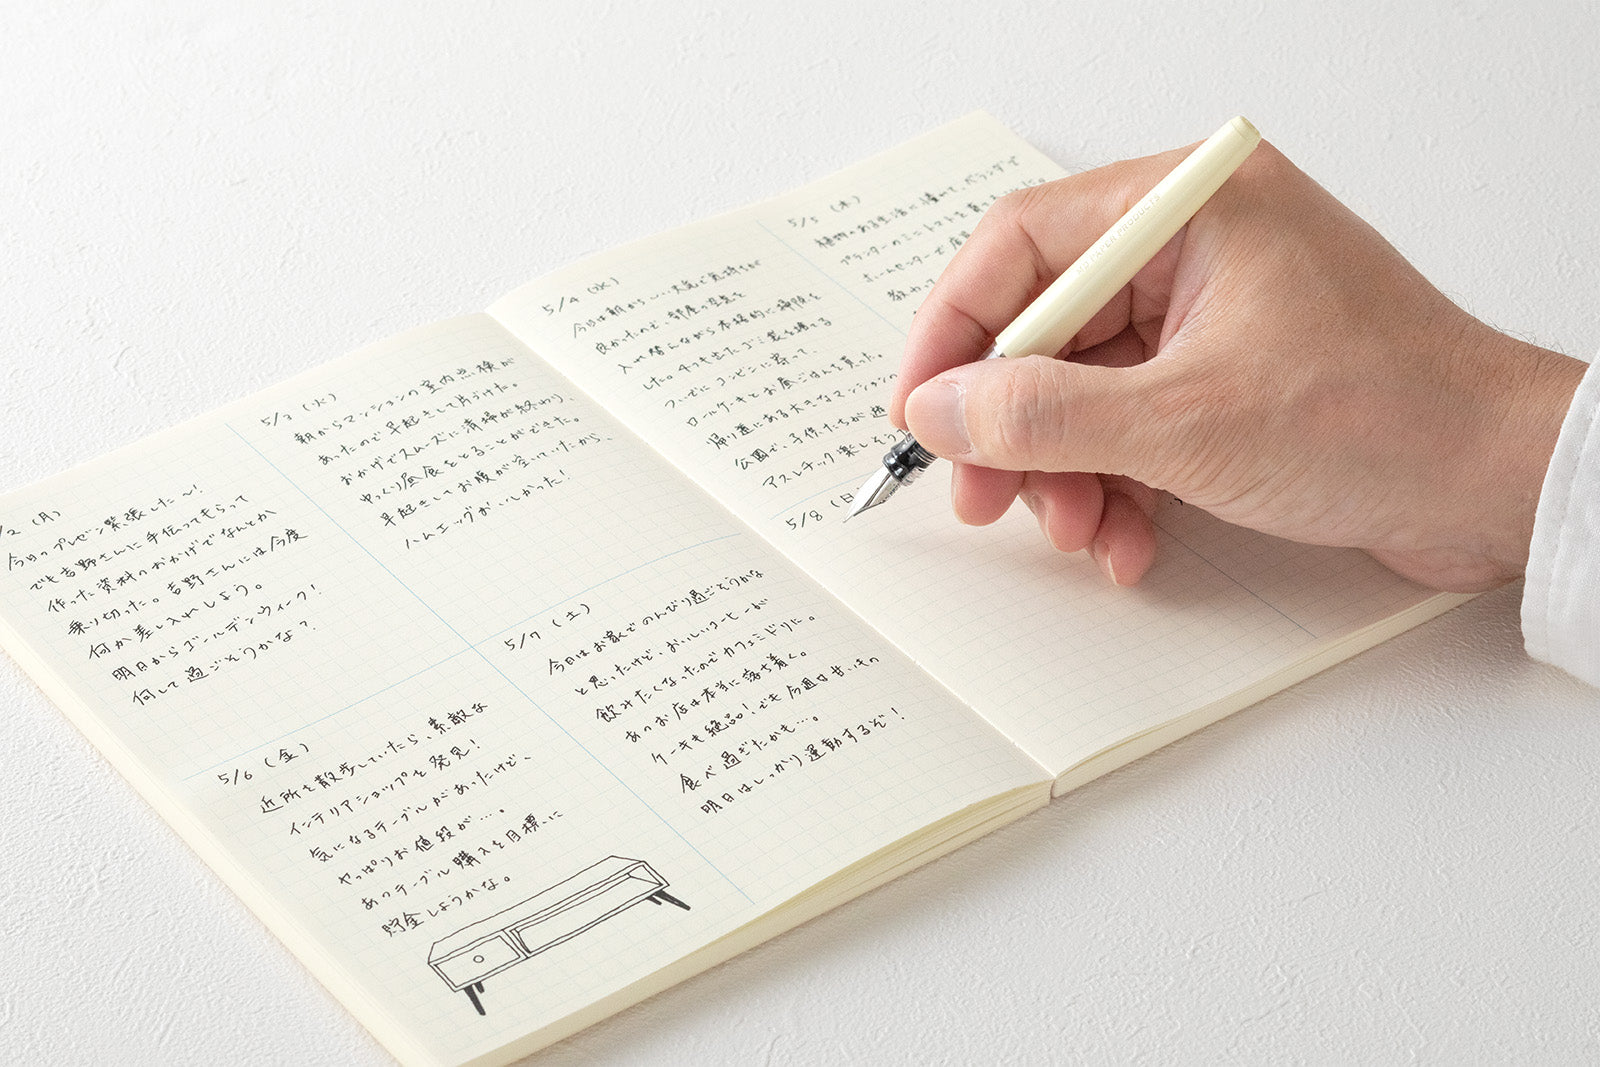 /2 (月)
今日のプレゼン緊張した〜!
でも吉野さんに手伝ってもらって
作った資料のおかげでなんとか
乗り切った。吉野さんには今度
何か差し入れしよう。
明日からゴールデンウィーク!
何して過ごそうかな?
5/3 (火)
朝からマンションの室内点検が
あったので早起きして片づけた。
おかげでスムーズに清掃が終わり、
ゆっくり昼食をとることができた。
早起きしてお腹が空いていたから、
ハムエッグがおいしかった!
5/4 (水)
今日は朝からいい天気で気持ちが
良かったので、部屋の空気を
入れ替えながら本格的に掃除を
した。4つも出たゴミ袋を捨てる
ついでにコンビニに寄って、
ロールケーキとお昼ごはんを買った。
帰り道にある大きなマンションの
公園で、子供たちが遊
アスレチック楽しそう
5/5 (木)
植物のある生活に憧れて、ベランダで
プランターのミニトマトを育て
ホームセンターで店
教わって
5/6 (金)
近所を散歩していたら、素敵な
インテリアショップを発見!
気になるテーブルがあったけど、
やっぱりお値段が…。
あのテーブル購入を目標に
貯金しようかな。
5/7 (土)
今日はお家でのんびり過ごそうかな
と思ったけど、おいしいコーヒーが
飲みたくなったのでカフェミドリに。
あのお店は本当に落ち着く。
ケーキも絶品!でも今週甘いもの
食べ過ぎたかも…。
明日はしっかり運動するぞ!
5/8 (日
PAPER PRODUCTS